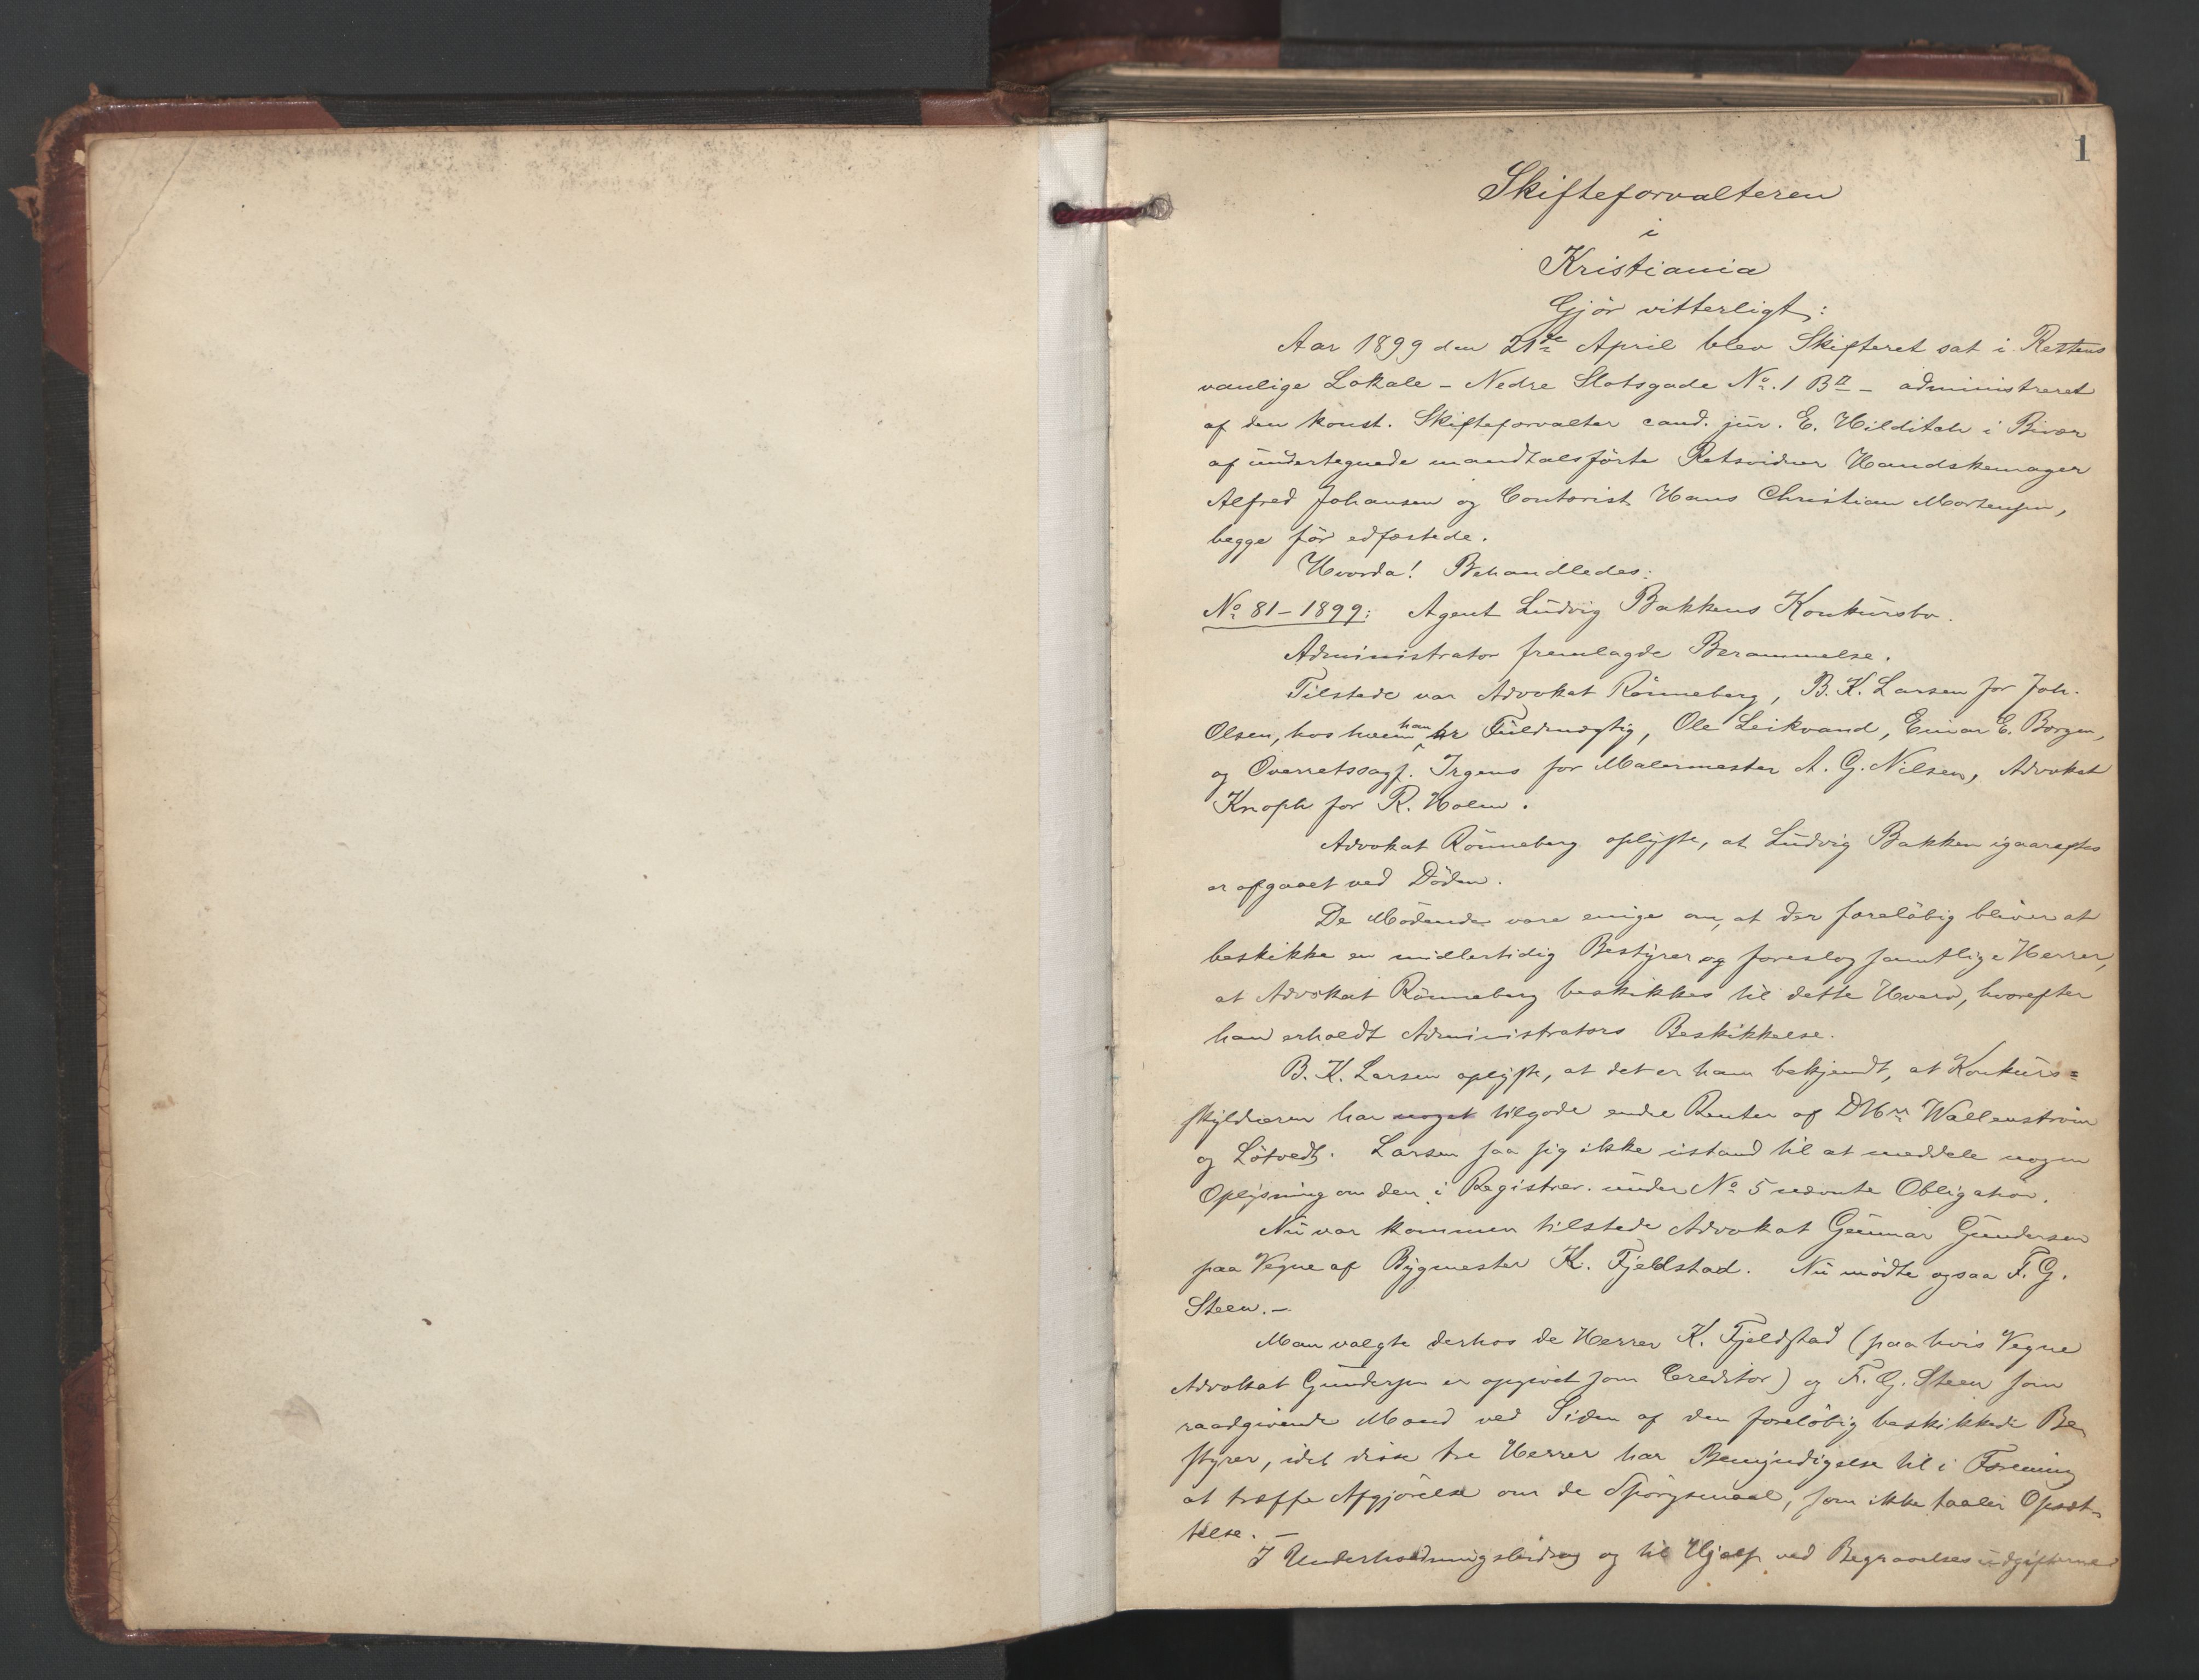 1
Skifteforvalteren
i
Kristiania
Gjör vitterligt:
Aar 1899 den 21de April blev Skifteret sat i Rettens
vanlige Lokale – Nedre Slotsgade No. 1 BII – administreret
af den konst. Skifteforvalter cand. jur. E. Hilditch i Bivær
af undertegnede mandtalsförte Retsvidner Handskemager
Alfred Johansen og Contorist Hans Christian Mortensen,
begge för edfæstede.
Hvorda! Behandledes:
No 81–1899: Agent Ludvig Bakkens Konkursbo.
Administrator fremlagde Berammelse.
Tilstede var Advokat Rönneberg, B. K. Larsen for Joh.
Olsen, hos hvem han er Fuldmægtig, Ole Leikvand, Einar E. Borgen,
og Overretssagf. Irgens for Malermester A. G. Nilsen, Advokat
Knoph for R. Holm.
Advokat Rönneberg oplyste, at Ludvig Bakken igaaraftes
er afgaaet ved Döden.
De Mödende vare enige om, at der foreløbig bliver at
beskikke en midlertidig Bestyrer og foreslog samtlige Herrer,
at Advokat Rönneberg beskikkes til dette Hverv, hvorefter
han erholdt Administrators Beskikkelse.
B. K. Larsen oplyste, at det er ham bekjendt, at Konkurs=
skyldneren har noget tilgode endel Renter af DHrr Wallenström
og Lötvedt. Larsen saa sig ikke istand til at meddele nogen
Oplysning om den i Registrer. under No 5 nævnte Obligation.
Nu var kommen tilstede Advokat Gunnar Gundersen
paa Vegne af Bygmester K. Fjeldstad. Nu mödte ogsaa F. G.
Steen. –
Man valgte derhos de Herrer K. Fjeldstad (paa hvis Vegne
Advokat Gundersen er opgivet som Creditor) og F. G. Steen som
raadgivende Mænd ved Siden af den foreløbig beskikkede Be
styrer, idet disse tre Herrer har Bemyndigelse til i Forening
at træffe Afgjörelse om de Spörgsmaal, som ikke taaler Opsæt
telse. –
I Underholdningsbidrag og til Hjælp ved Begravelsesudgifterne